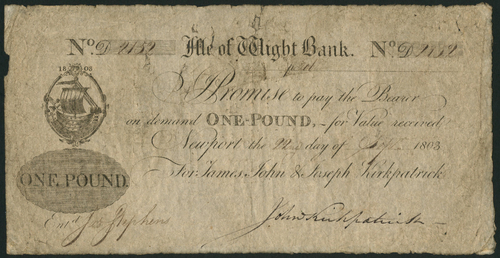 No. D 2152 Isle of Wight Bank. No. D 2152
1803
I Promise to pay the Bearer
on demand ONE-POUND, for Value received
Newport the 22 day of 1803
ONE POUND.
For James, John & Joseph Kirkpatrick
Entd. Jas Stephens John Kirkpatrick